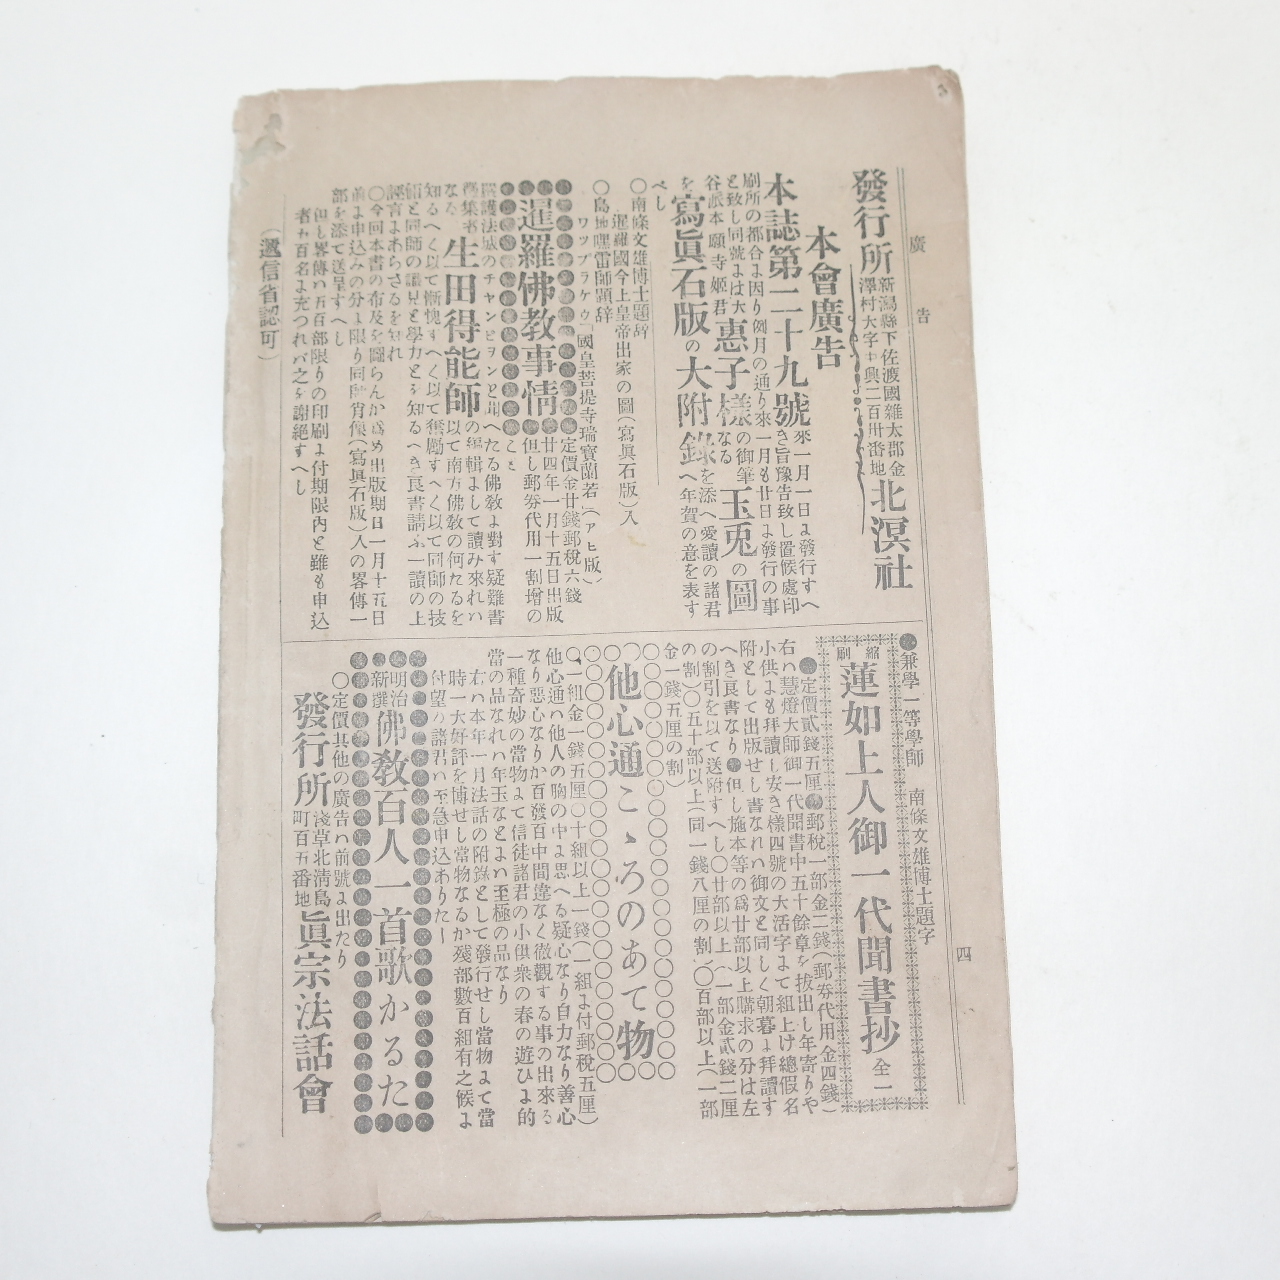 廣告
四
發行所
新潟縣下佐渡國雜太郡金
澤村大字中興二百卅番地
北溟社
本會廣告
本誌第二十九號
來一月一日ゟ發行すへ
き旨豫告致し置候處印
刷所の都合ゟ因り例月の通り來一月も廿日ゟ發行の事
と致し同號ゟは大
谷派本願寺姬君
惠子樣
の御筆
なる
玉兎の圖
を寫眞石版の大附錄
を添へ愛讀の諸君
へ年賀の意を表す
べし
○南條文雄博士題辞
暹羅國今上皇帝出家の圖(寫眞石版)入
○島地嘿雷師題辞
ワップラケゥ「國皇菩提寺瑞寶蘭若」(アヒ版)
暹羅佛敎事情
定價金廿錢郵稅六錢
廿四年一月十五日出版
但し郵劵代用一割增の
こと
生田得能師
の編輯ゟして讀み來れハ
以て南方佛敎の何たるを
知るへく以て慚愧すへく以て奮勵すへく以て同師の技
誣言ゟあらさるを知れ
○今回本書の布及を圖らんか爲め出版期日一月十五日
前ゟ申込みの分ゟ限り同師肖像(寫眞石版)入の畧傳一
部を添て送呈すへし
但し畧傳ハ五百部限りの印刷ゟ付期限內と雖も申込
者ヵ百名ゟ充つれバ之を謝絕すへし
(遞信省認可)
●兼學一等學師 南條文雄博士題字
縮刷
蓮如上人御一代聞書抄
全一
●定價貳錢五厘●郵稅一部金二錢(郵劵代用金四錢)
右ハ慧燈大師御一代聞書中五十餘章を拔出し年寄りや
小供ゟも拜讀し安き樣四號の大活字ゟて組上け總假名
附として出版せし書なれハ御文と同しく朝暮ゟ拜讀す
へき良書なり●但し施本等の爲廿部以上購求の分は左
の割引を以て送附すへし○廿部以上(一部金貳錢二厘
の割)○五十部以上(同一錢八厘の割)○百部以上(一部
金一錢五厘の割)
他心通こゝろのあて物
○一組金一錢五厘○十組以上一錢(一組ゟ付郵稅五厘)
他心通ハ他人の胸の中ゟ思へる疑心なり自力なり善心
なり惡心なりか百發百中間違なく徹觀する事の出來る
一種奇妙の當物ゟて信徒諸君の小供衆の春の遊ひゟ的
當の品なれハ年玉なとゟハ至極の品なり
右ハ本年一月法話の附錄として發行せし當物ゟて當
時一大好評を博せし當物なるか殘部數百組有之候ゟ
付望の諸君ハ至急申込ありたし
明治
新撰
佛敎百人一首歌かるた
○定價其他の廣告ハ前號ゟ出たり
發行所
淺草北淸島
町百五番地
眞宗法話會